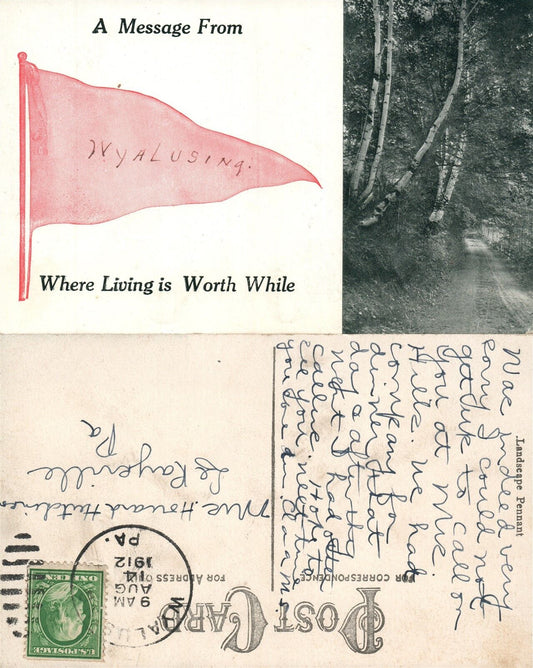 A Message From
WYALUSING.
Where Living is Worth While
Landscape Pennant
POST CARD
FOR CORRESPONDENCE
FOR ADDRESS
Was indeed very
sorry I could not
get up to call on
you at
We had
company for
dinner that
day & after they
went I had other
callers. Hope to
see you next time
you are in
Mrs Howard
Le Raysville
Pa
WYALUSING
9 AM
AUG
14
1912
PA.
U.S. POSTAGE
ONE CENT